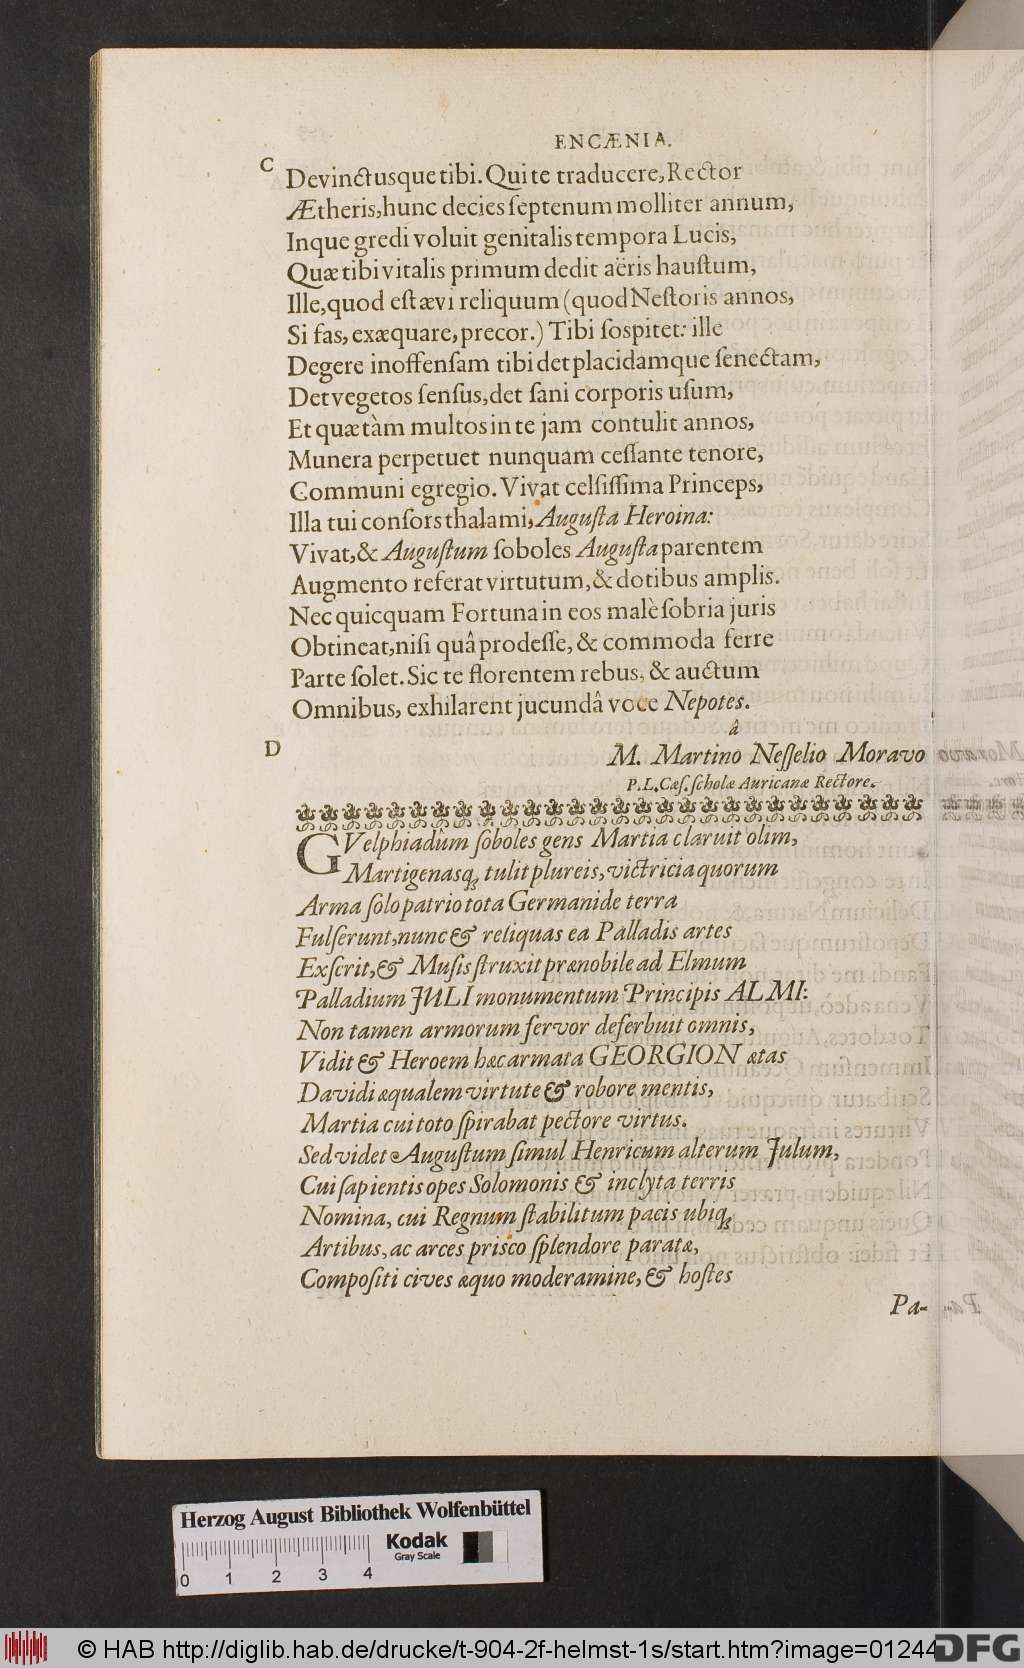 ENCÆNIA.
C
Devinctusque tibi. Qui te traducere, Rector
Ætheris, hunc decies ſeptenum molliter annum,
Inque gredi voluit genitalis tempora Lucis,
Quæ tibi vitalis primum dedit aëris hauſtum,
Ille, quod eſt ævi reliquum (quod Neſtoris annos,
Si fas, exæquare, precor.) Tibi ſoſpitet: ille
Degere inoffenſam tibi det placidamque ſenectam,
Det vegetos ſenſus, det ſani corporis uſum,
Et quæ tàm multos in te jam contulit annos,
Munera perpetuet nunquam ceſſante tenore,
Communi egregio. Vivat celſiſſima Princeps,
Illa tui conſors thalami, Auguſta Heroina:
Vivat, & Auguſtum ſoboles Auguſta parentem
Augmento referat virtutum, & dotibus amplis.
Nec quicquam Fortuna in eos malè ſobria juris
Obtineat, niſi quâ prodeſſe, & commoda ferre
Parte ſolet. Sic te florentem rebus, & auctum
Omnibus, exhilarent jucundâ voce Nepotes.
â
D
M. Martino Neſſelio Moravo
P. L. Cæſ. ſcholæ Auricanæ Rectore.
GVelphiadûm ſoboles gens Martia claruit olim,
Martigenasq; tulit plureis, victricia quorum
Arma ſolo patrio tota Germanide terra
Fulſerunt, nunc & reliquas ea Palladis artes
Exſcrit, & Muſis ſtruxit prænobile ad Elmum
Palladium JULI monumentum Principis ALMI:
Non tamen armorum fervor deferbuit omnis,
Vidit & Heroem hæc armata GEORGION ætas
Davidi æqualem virtute & robore mentis,
Martia cui toto ſpirabat pectore virtus.
Sed videt Auguſtum ſimul Henricum alterum Julum,
Cui ſapientis opes Solomonis & inclyta terris
Nomina, cui Regnum ſtabilitum pacis ubiq;
Artibus, ac arces priſco ſplendore paratæ,
Compoſiti cives æquo moderamine, & hoſtes
Pa-
Herzog August Bibliothek Wolfenbüttel
Kodak
Gray Scale
0 1 2 3 4
© HAB http://diglib.hab.de/drucke/t-904-2f-helmst-1s/start.htm?image=01244
DFG